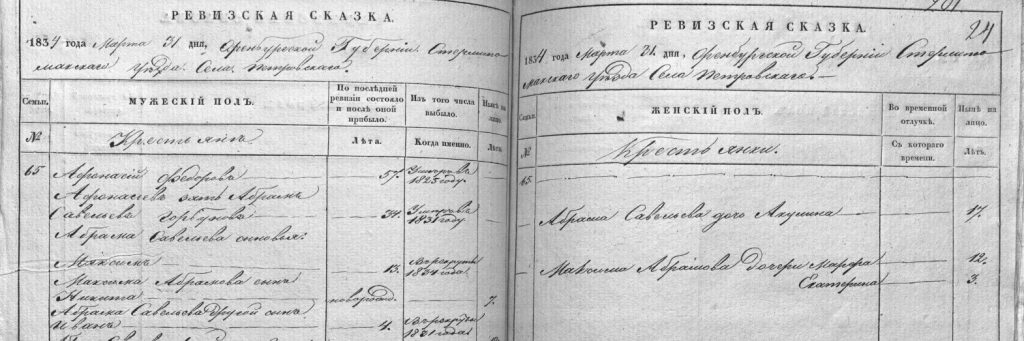 РЕВИЗСКАЯ СКАЗКА.
1834 года Марта 31 дня, Оренбургской Губернiи Стерлита-
макскаго уѣзда Села Петровскаго.
Семьи.
МУЖЕСКIЙ ПОЛЪ.
По послѣдней ревизiи состояло и послѣ оной прибыло.
Изъ того числа выбыло.
Нынѣ на лицо.
№
Крестьянъ
Лѣта.
Когда именно.
Лѣта.
65 Афонасiй Федоровъ 57. Умеръ въ 1825 году.
Афонасьевъ зять Абрамъ
Савельевъ Горбуновъ 34. Умеръ въ 1831 году
Абрама Савельева сыновья:
Максимъ 13. В рекруты 1831 года.
Максима Абрамова сынъ
Никита новорожд. 7.
Абрама Савельева другой сынъ
Иванъ 4. В рекруты 1831 года.
24
РЕВИЗСКАЯ СКАЗКА.
1834 года Марта 31 дня, Оренбургской Губернiи Стерлита-
макскаго уѣзда Села Петровскаго.
Семьи.
ЖЕНСКIЙ ПОЛЪ.
Во временной отлучкѣ.
Нынѣ на лицо.
№
Крестьянки.
Съ котораго времени.
Лѣтъ.
65.
Абрама Савельева дочь Акулина 17.
Максима Абрамова дочери Марфа 12.
Екатерина 3.